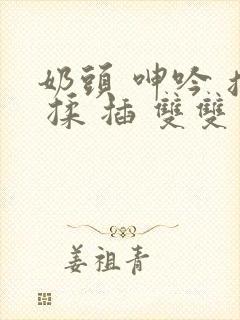 奶頭 呻吟
揉 插 雙雙
姜祖青